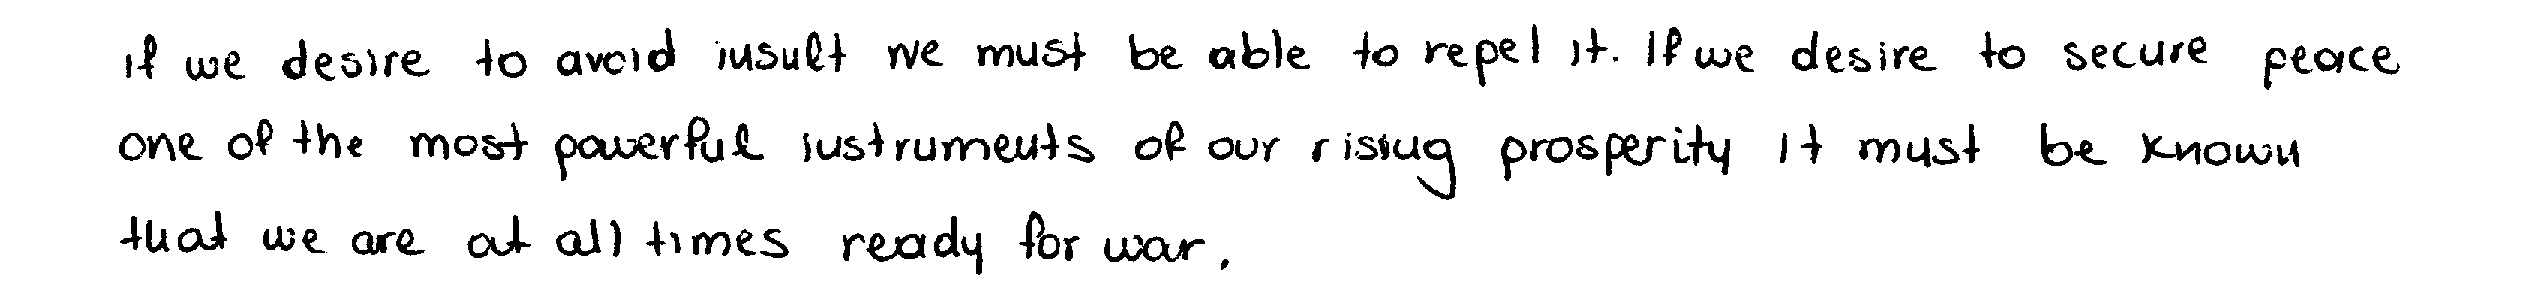 if we desire to avoid insult we must be able to repel it. If we desire to secure peace
one of the most powerful instruments of our rising prosperity it must be known
that we are at all times ready for war.